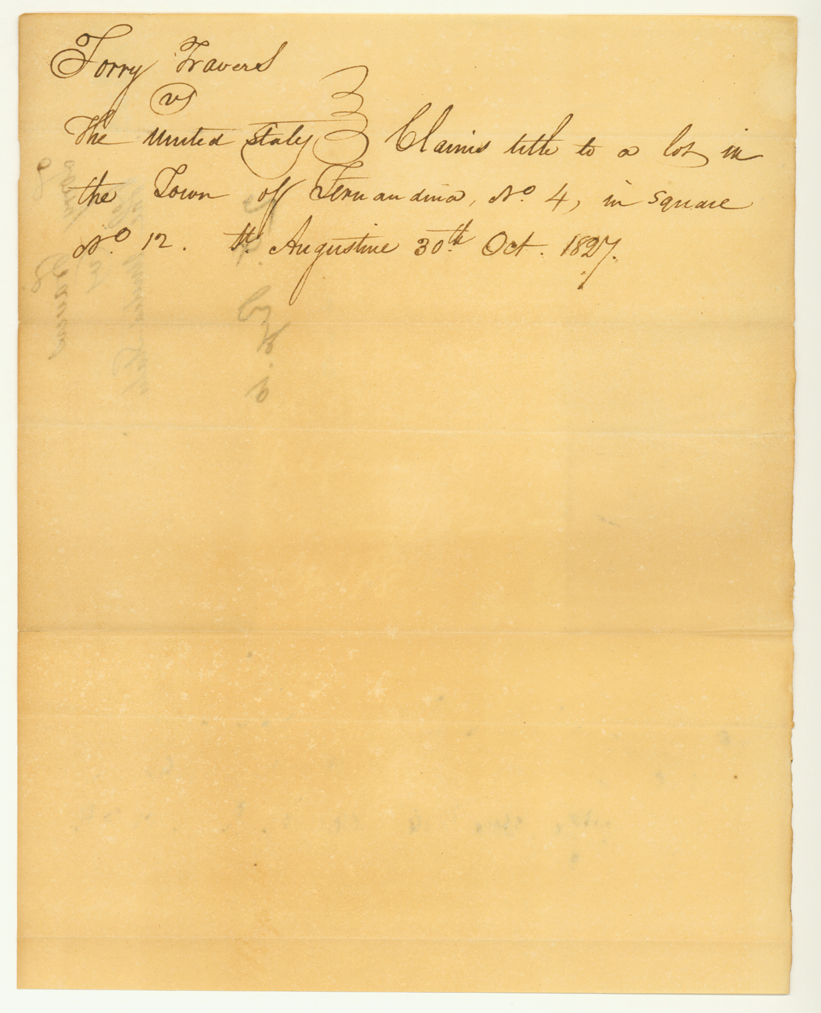 Torry Travers
vs
The United States } Claims title to a lot in
the Town of Fernandina, No 4, in square
No 12. St. Augustine 30th Oct. 1827.